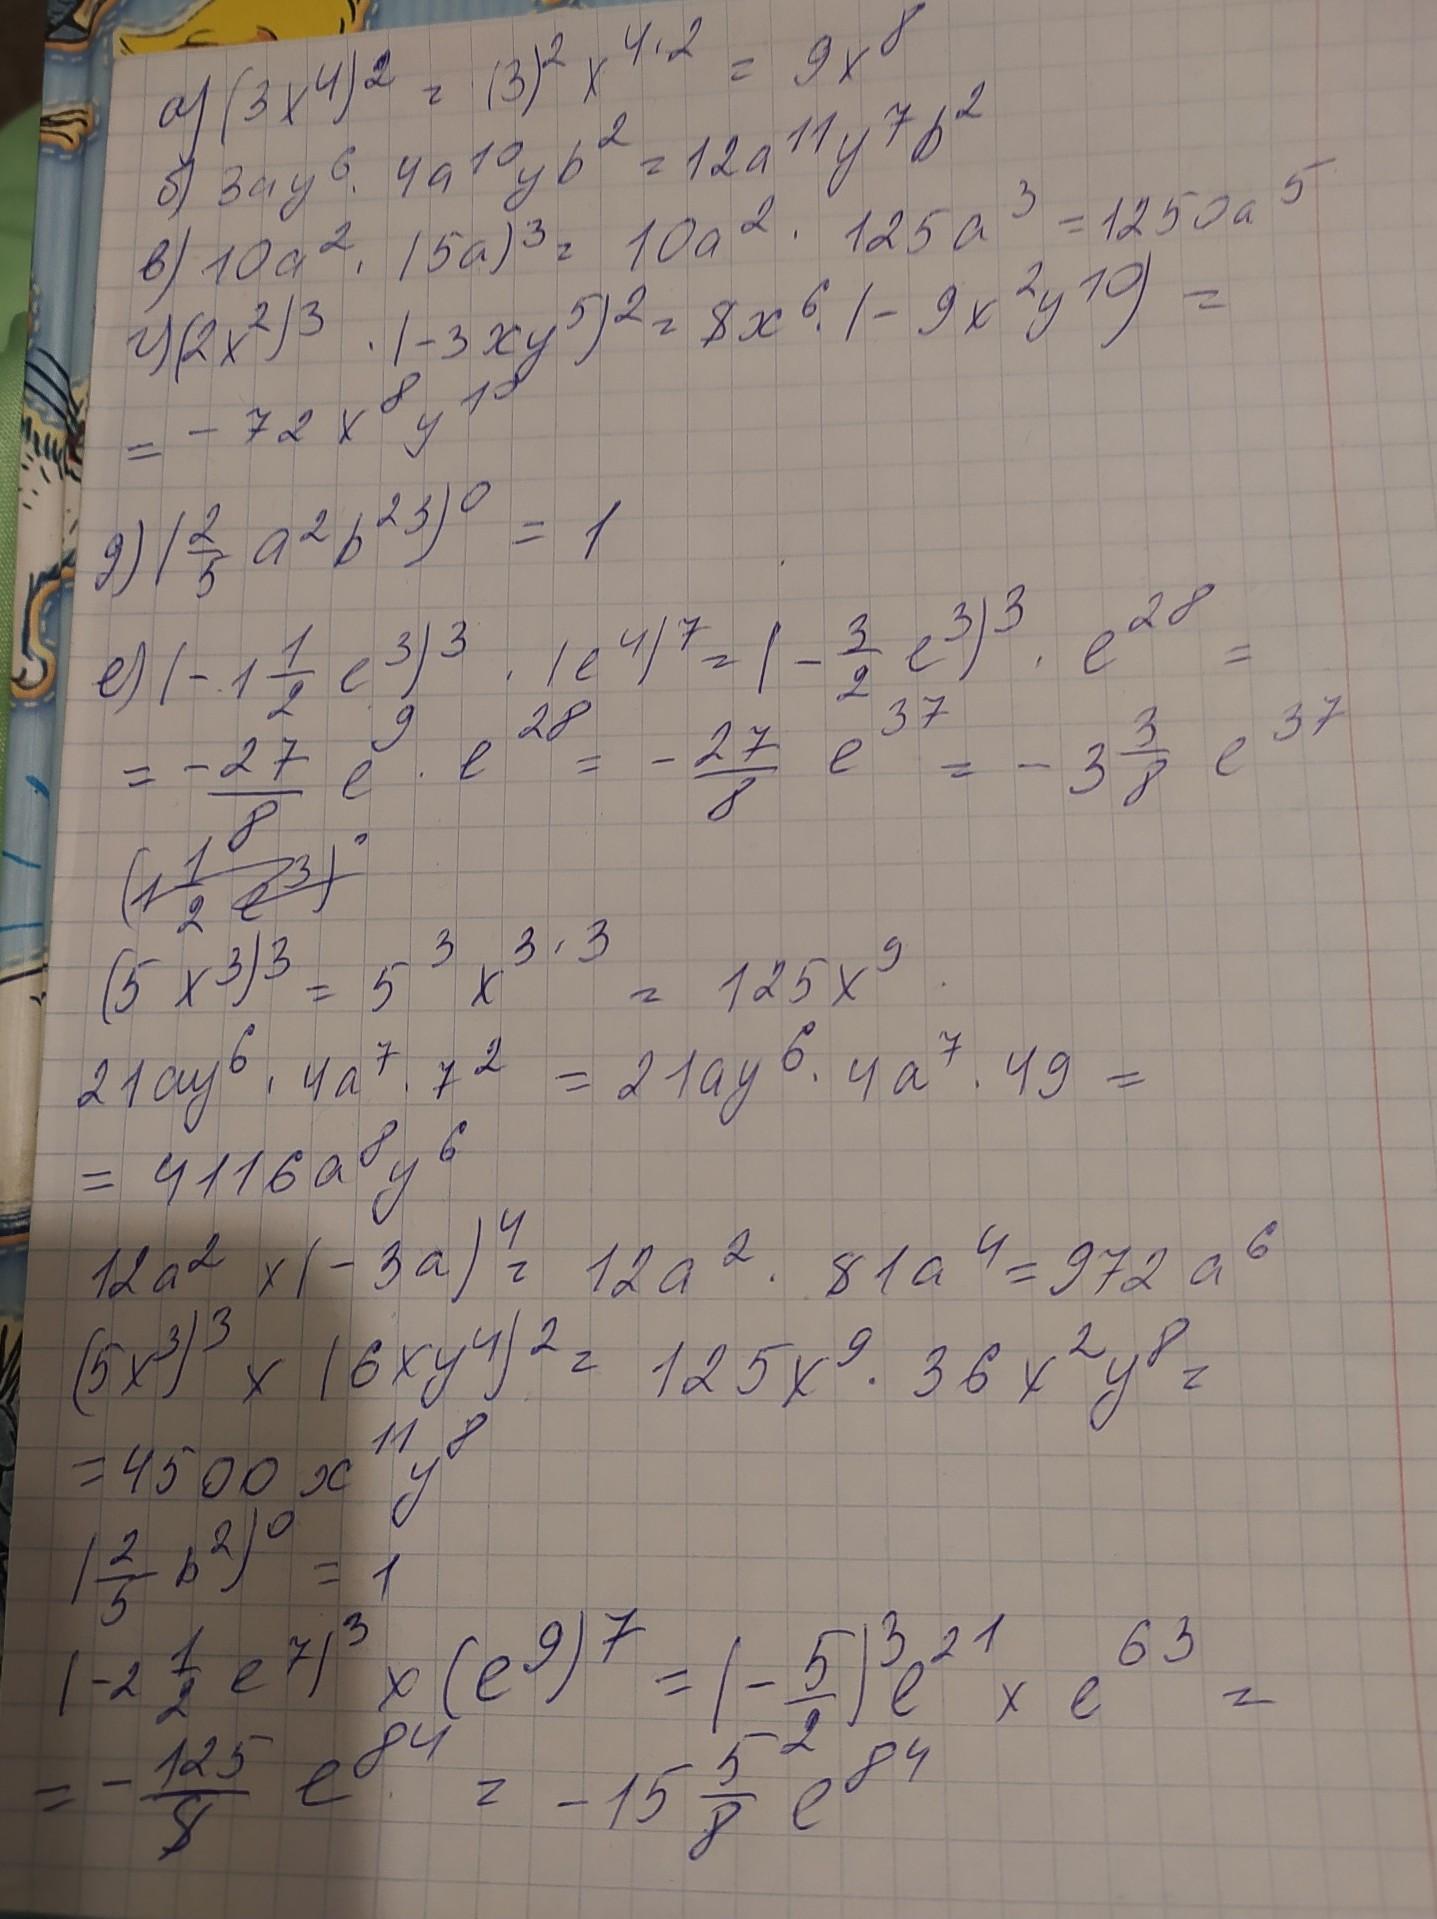 а) (3x⁴)² = (3)² x⁴·² = 9x⁸
б) 3ay⁶ · 4a¹⁰yb² = 12a¹¹y⁷b²
в) 10a² · (5a)³ = 10a² · 125a³ = 1250a⁵
г) (2x²)³ · (-3xy⁵)² = 8x⁶ · (-9x²y¹⁰) =
= -72x⁸y¹⁰
д) (2/5 a²b²³)⁰ = 1
е) (-1 1/2 e³)³ · (e⁴)⁷ = (-3/2 e³)³ · e²⁸ =
= -27/8 e⁹ · e²⁸ = -27/8 e³⁷ = -3 3/8 e³⁷
(1 1/2 e³)
(5x³)³ = 5³ x³·³ = 125x⁹
21ay⁶ · 4a⁷ · 7² = 21ay⁶ · 4a⁷ · 49 =
= 4116a⁸y⁶
12a² x (-3a)⁴ = 12a² · 81a⁴ = 972a⁶
(5x³)³ x (6xy⁴)² = 125x⁹ · 36x²y⁸ =
= 4500x¹¹y⁸
(2/5 b²)⁰ = 1
(-2 1/2 e⁷)³ x (e⁹)⁷ = (-5/2)³e²¹ x e⁶³ =
= -125/8 e⁸⁴ = -15 5/8 e⁸⁴